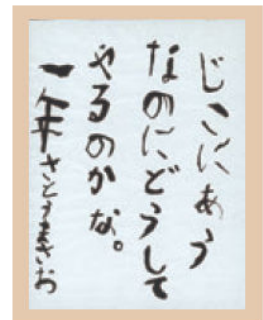 じこにあう
なのにどうして
やるのかな。
一年さとうまさお